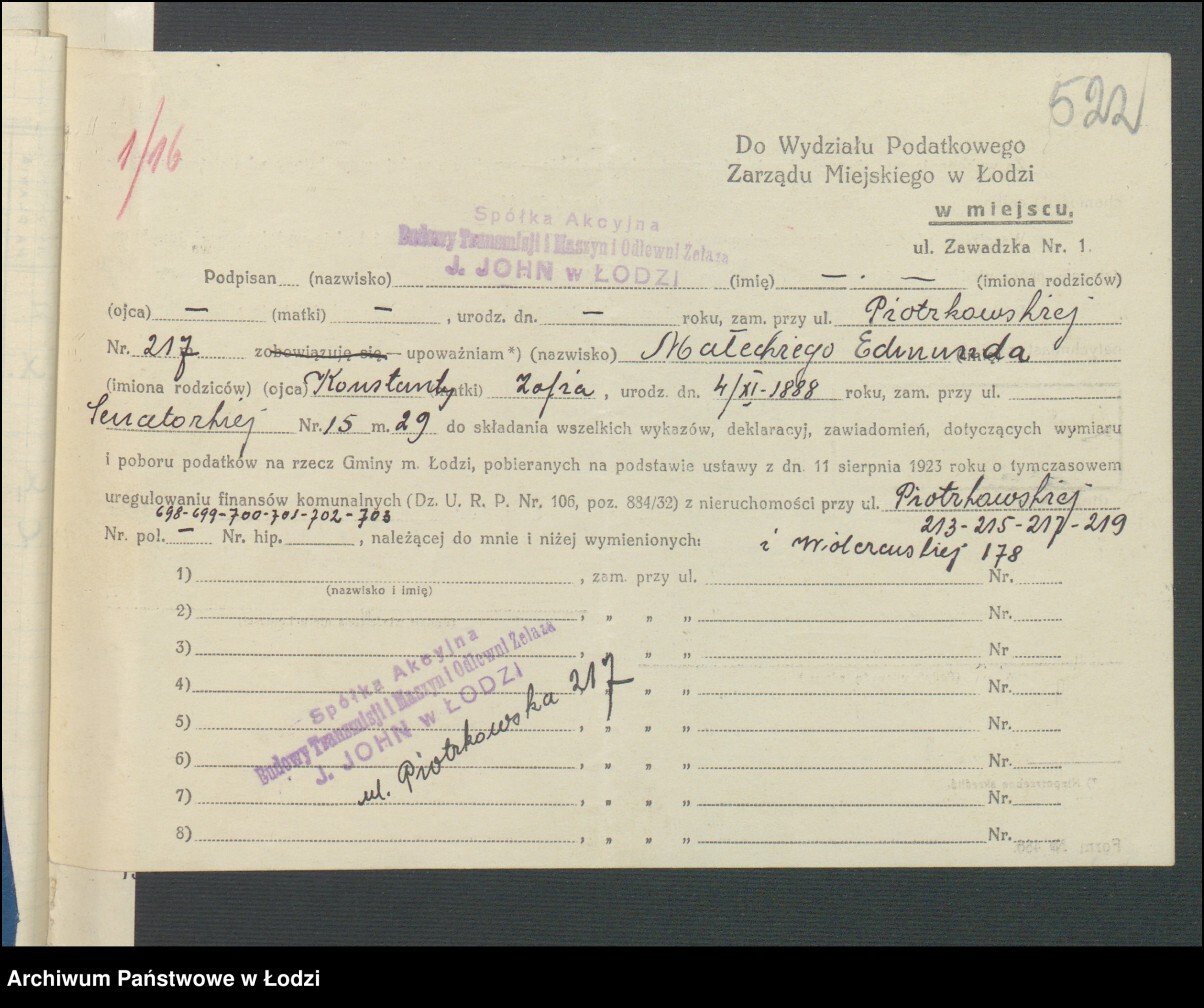 522
1/16
Do Wydziału Podatkowego
Zarządu Miejskiego w Łodzi
w miejscu,
ul. Zawadzka Nr. 1.
Spółka Akcyjna
Budowy Transmisji i Maszyn i Odlewni Żelaza
J. JOHN w ŁODZI
Podpisan (nazwisko) (imię) — . — (imiona rodziców)
(ojca) — (matki) — , urodz. dn. — roku, zam. przy ul. Piotrkowskiej
Nr. 217 zobowiązuję się, upoważniam *) (nazwisko) Małeckiego Edmunda
(imiona rodziców) (ojca) Konstanty (matki) Zofia , urodz. dn. 4/XI-1888 roku, zam. przy ul.
Senatorkiej Nr. 15 m. 29 do składania wszelkich wykazów, deklaracyj, zawiadomień, dotyczących wymiaru
i poboru podatków na rzecz Gminy m. Łodzi, pobieranych na podstawie ustawy z dn. 11 sierpnia 1923 roku o tymczasowem
uregulowaniu finansów komunalnych (Dz. U. R. P. Nr. 106, poz. 884/32) z nieruchomości przy ul. Piotrkowskiej
698-699-700-701-702-703 213-215-217-219
Nr. pol. — Nr. hip. , należącej do mnie i niżej wymienionych: i Wólczańskiej 178
1) , zam. przy ul. Nr.
(nazwisko i imię)
2) , „ „ „ Nr.
3) , „ „ „ Nr
4) , „ „ „ Nr.
5) , „ „ „ Nr.
6) , „ „ „ Nr.
7) , „ „ „ Nr.
8) , „ „ „ Nr.
Spółka Akcyjna
Budowy Transmisji i Maszyn i Odlewni Żelaza
J. JOHN w ŁODZI
ul. Piotrkowska 217
Archiwum Państwowe w Łodzi